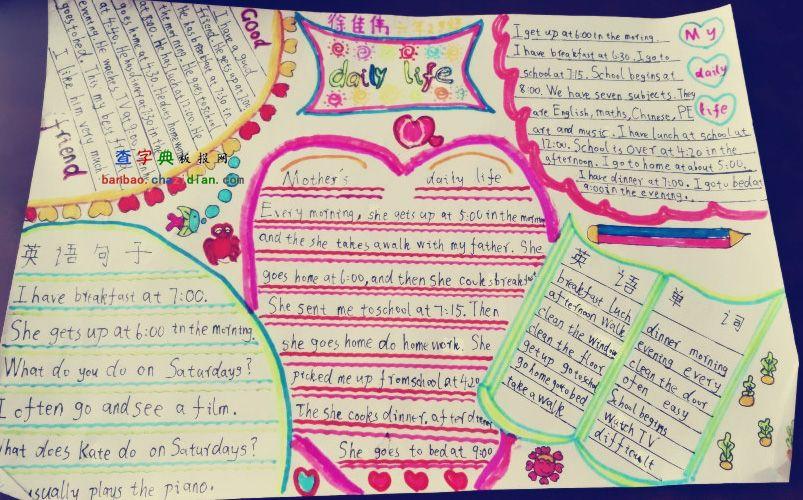 Good
friend
I have a good
friend. He gets up at 7:00 in
the morning. He goes to school
He has lunch at 12:00. He
goes home at 4:30. He does homework
at 4:40. He
evening. He watches TV at 9:00
goes to bed. This my best friend
I like him very much
徐佳伟
daily life
My
daily
life
I get up at 6:00 in the morning.
I have breakfast at 6:30. I go to
school at 7:15. School begins at
8:00. We have seven subjects. They
are English, maths, Chinese, PE
art and music. I have lunch at school at
12:00. School is over at 4:20 in the
afternoon. I go to home at about 5:00.
I have dinner at 7:00. I go to bed at
9:00 in the evening.
查字典板报网
banbao.chazidian.com
Mother's daily life
Every morning, she gets up at 5:00 in the morning
and the she takes a walk with my father. She
goes home at 6:00, and then she cooks breakfast
She sent me to school at 7:15. Then
she goes home do homework. She
picked me up from school at 4:20
The she cooks dinner. after dinner
She goes to bed at 9:00
英语句子
I have breakfast at 7:00.
She gets up at 6:00 in the morning.
What do you do on Saturdays?
I often go and see a film.
what does Kate do on Saturdays?
usually plays the piano.
英语单词
breakfast luch
afternoon walk
clean the window
clean the floor
get up go to school
go home go to bed
take a walk
dinner morning
evening every
clean the door
ofen easy
school begins
watch TV
difficult